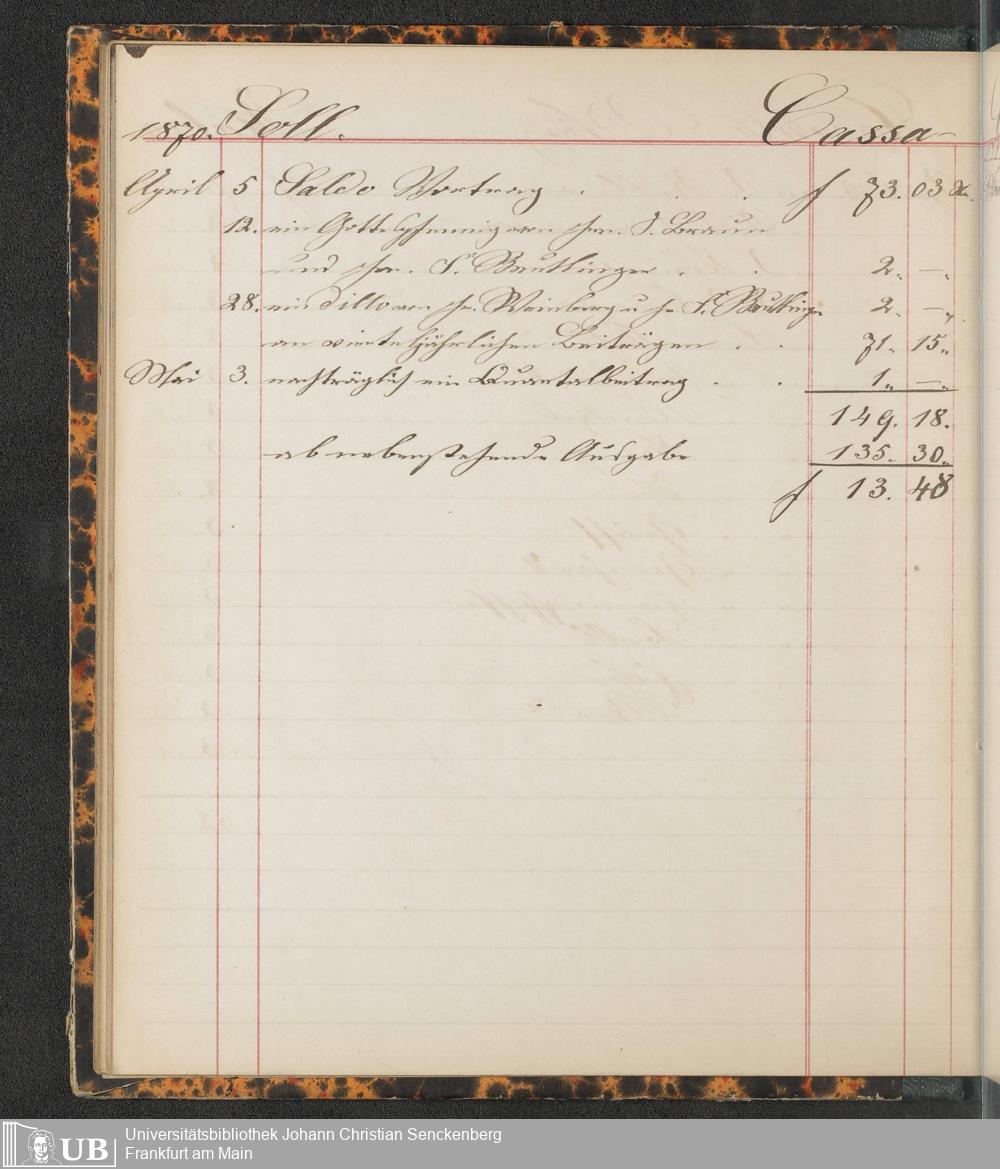 1870. Soll. Cassa
April 5 Saldo Vortrag . . . f 73. 03 Xr.
12. ein Gottespfennig von Hrn. J. Braun
und Hrn. S. Reutlinger . . 2„ —„
28. ein ditto von Hr. Weinberg u Hr S. Reutlinger 2„ —„
an vierteljährlichen Beiträgen . . 71„ 15„
Mai 3. nachträglich ein Quartalbeitrag . . 1„ —„
149. 18.
ab nebenstehende Ausgabe 135. 30„
f 13. 48
UB Universitätsbibliothek Johann Christian Senckenberg
Frankfurt am Main